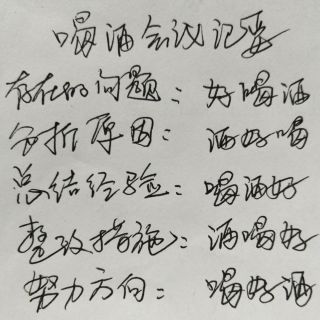 喝酒会议记要
存在的问题：好喝酒
分析原因：酒好喝
总结经验：喝酒好
整改措施：酒喝好
努力方向：喝好酒